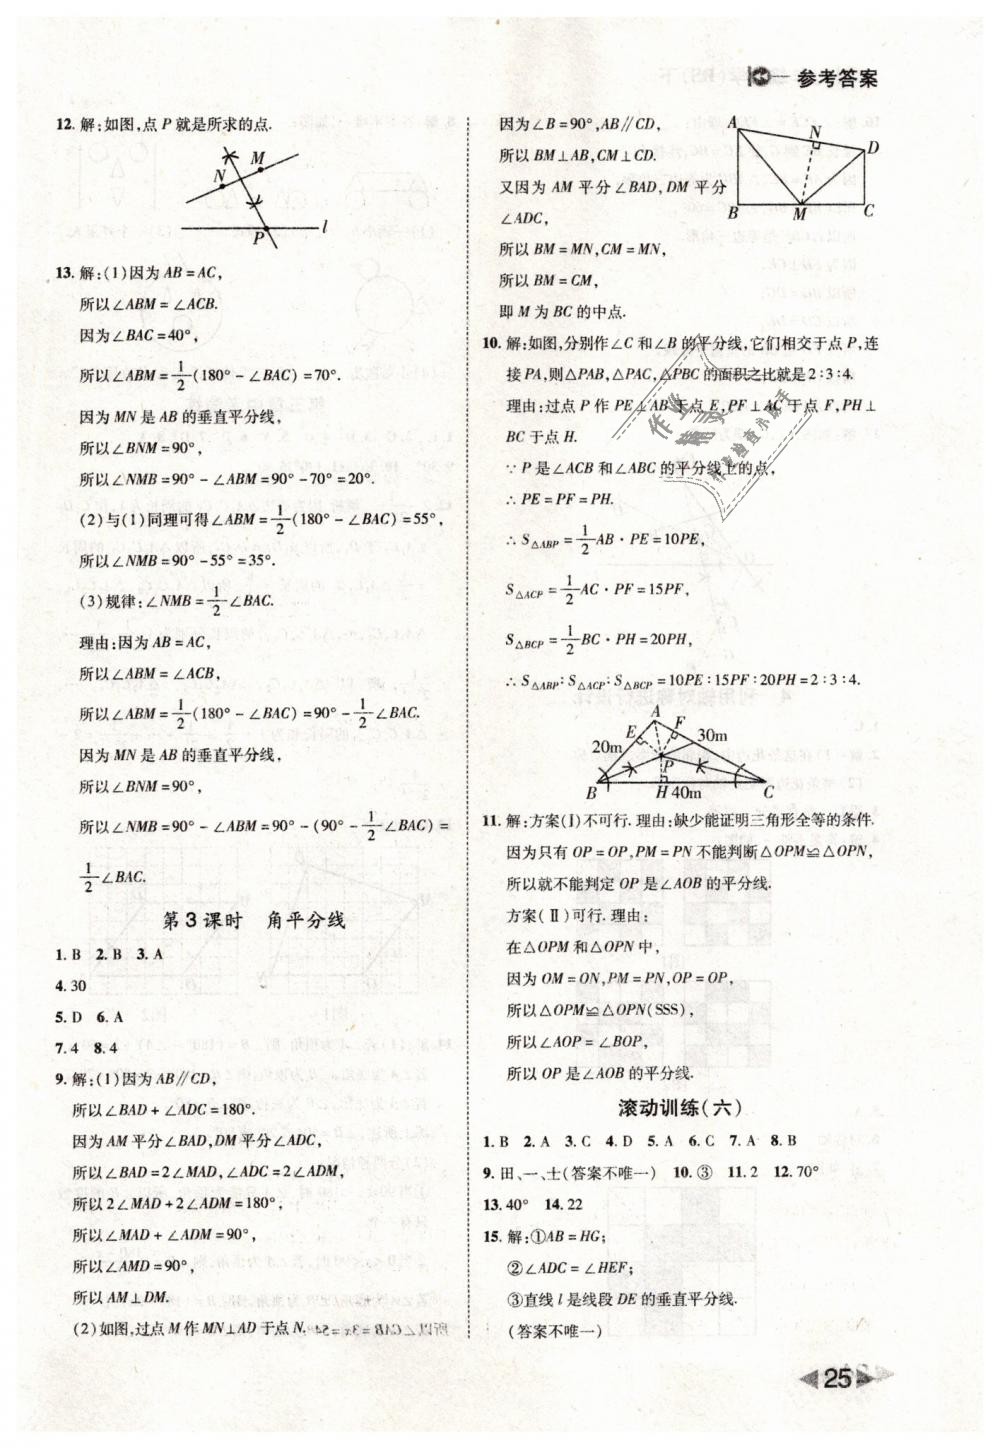 参考答案
12. 解:如图,点 P 就是所求的点.
M
N
P
l
13. 解:(1)因为 AB = AC,
所以∠ABM = ∠ACB.
因为∠BAC = 40°,
所以∠ABM = 1/2(180° - ∠BAC) = 70°.
因为 MN 是 AB 的垂直平分线,
所以∠BNM = 90°,
所以∠NMB = 90° - ∠ABM = 90° - 70° = 20°.
(2)与(1)同理可得∠ABM = 1/2(180° - ∠BAC) = 55°,
所以∠NMB = 90° - 55° = 35°.
(3)规律:∠NMB = 1/2∠BAC.
理由:因为 AB = AC,
所以∠ABM = ∠ACB,
所以∠ABM = 1/2(180° - ∠BAC) = 90° - 1/2∠BAC.
因为 MN 是 AB 的垂直平分线,
所以∠BNM = 90°,
所以∠NMB = 90° - ∠ABM = 90° - (90° - 1/2∠BAC) =
1/2∠BAC.
第 3 课时 角平分线
1. B 2. B 3. A
4. 30
5. D 6. A
7. 4 8. 4
9. 解:(1)因为 AB∥CD,
所以∠BAD + ∠ADC = 180°.
因为 AM 平分∠BAD,DM 平分∠ADC,
所以∠BAD = 2∠MAD,∠ADC = 2∠ADM,
所以 2∠MAD + 2∠ADM = 180°,
所以∠MAD + ∠ADM = 90°,
所以∠AMD = 90°,
所以 AM⊥DM.
(2)如图,过点 M 作 MN⊥AD 于点 N.
因为∠B = 90°,AB∥CD,
所以 BM⊥AB,CM⊥CD.
又因为 AM 平分∠BAD,DM 平分
∠ADC,
所以 BM = MN,CM = MN,
所以 BM = CM,
即 M 为 BC 的中点.
A
N
D
B
M
C
10. 解:如图,分别作∠C 和∠B 的平分线,它们相交于点 P,连
接 PA,则△PAB,△PAC,△PBC 的面积之比就是 2∶3∶4.
理由:过点 P 作 PE⊥AB 于点 E,PF⊥AC 于点 F,PH⊥
BC 于点 H.
∵P 是∠ACB 和∠ABC 的平分线上的点,
∴PE = PF = PH.
∴S△ABP = 1/2 AB · PE = 10PE,
S△ACP = 1/2 AC · PF = 15PF,
S△BCP = 1/2 BC · PH = 20PH,
∴S△ABP∶S△ACP∶S△BCP = 10PE∶15PF∶20PH = 2∶3∶4.
A
E
F
20m
30m
P
B
H 40m
C
11. 解:方案(Ⅰ)不可行. 理由:缺少能证明三角形全等的条件.
因为只有 OP = OP,PM = PN 不能判断△OPM≌△OPN,
所以就不能判定 OP 是∠AOB 的平分线.
方案(Ⅱ)可行. 理由:
在△OPM 和△OPN 中,
因为 OM = ON,PM = PN,OP = OP,
所以△OPM≌△OPN(SSS),
所以∠AOP = ∠BOP,
所以 OP 是∠AOB 的平分线.
滚动训练(六)
1. B 2. A 3. C 4. D 5. A 6. C 7. A 8. B
9. 田、一、士(答案不唯一) 10. ③ 11. 2 12. 70°
13. 40° 14. 22
15. 解:①AB = HG;
②∠ADC = ∠HEF;
③直线 l 是线段 DE 的垂直平分线.
(答案不唯一)
作业
精灵
作业检查小助手
25